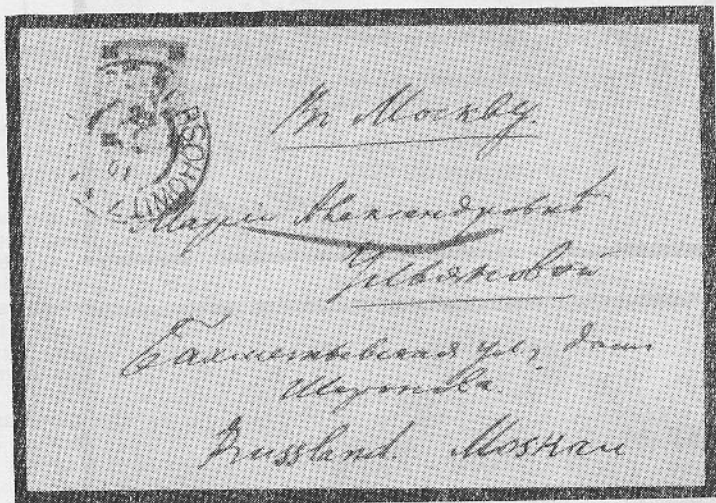 RSCHOWIT
Въ Москву.
Маріи Александровнѣ
Ульяновой
Бахметьевская ул., домъ
Шаронова.
Russland. Moskau